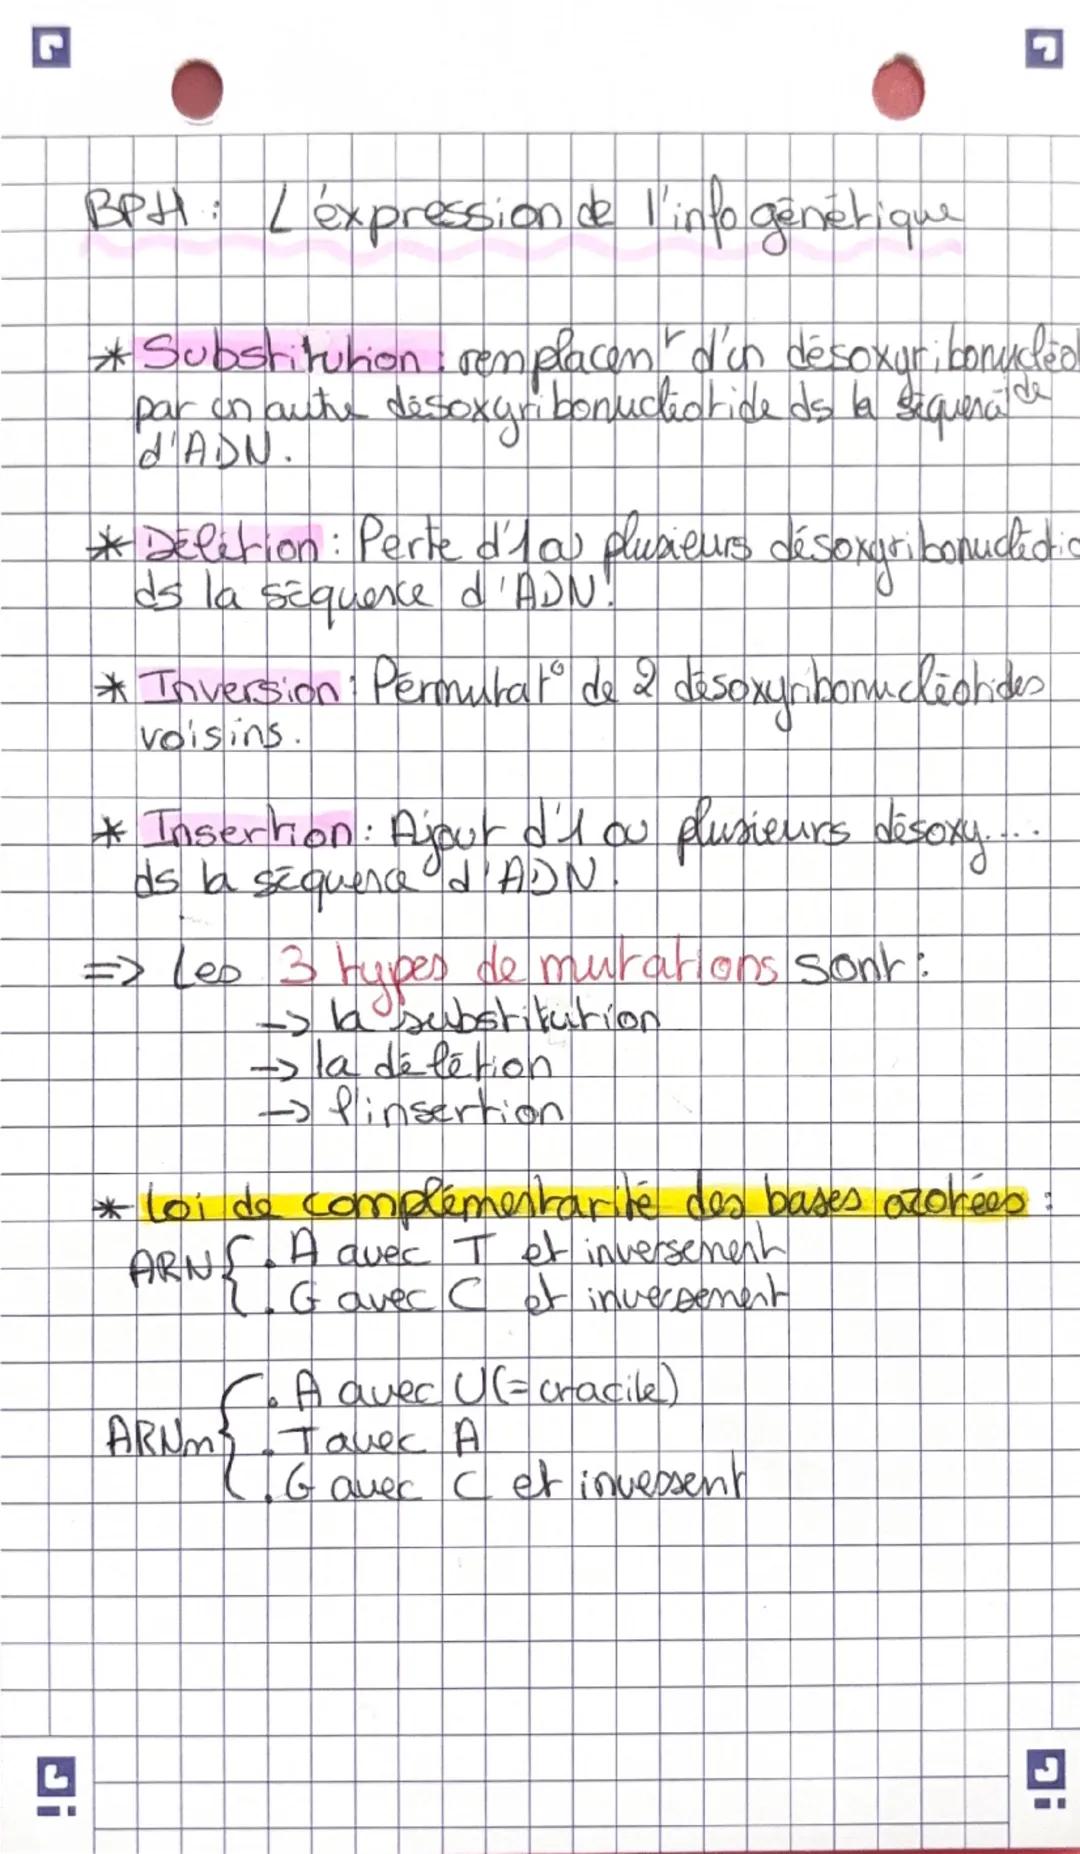 BPH : L'éxpression de l'info génétique
* Substitution : remplacemt d'un désoxyribonucléot
par un autre désoxyribonucléotide ds la séquence de
d'ADN.
* Délétion : Perte d'1 ou plusieurs désoxyribonucléotic
ds la séquence d'ADN.
* Inversion : Permutat° de 2 désoxyribonucléotides
voisins.
* Insertion : Ajout d'1 ou plusieurs désoxy....
ds la séquence d'ADN.
=> Les 3 types de mutations sont :
-> la substitution
-> la délétion
-> l'insertion
* Loi de complémentarité des bases azotées :
ARN { . A avec T et inversement
. G avec C et inversement
. A avec U (= uracile)
ARNm { . T avec A
. G avec C et inversent